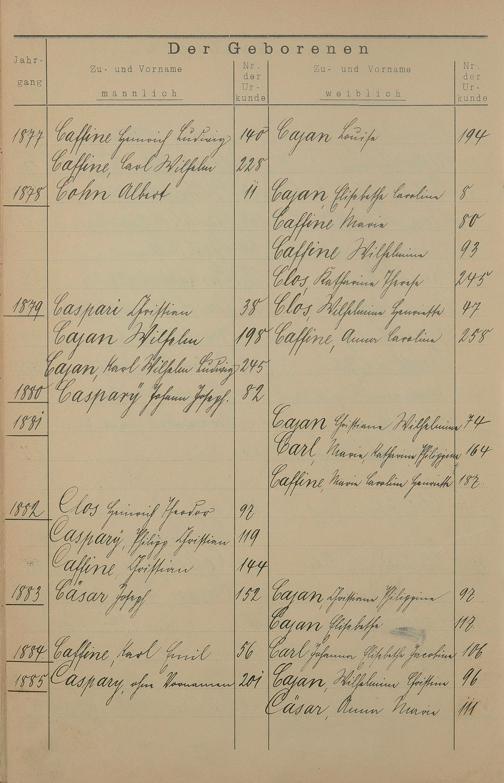 Der Geborenen
Jahr-
gang
Zu- und Vorname
männlich
Nr.
der
Ur-
kunde
Zu- und Vorname
weiblich
Nr.
der
Ur-
kunde
1877 Caffine Heinrich Ludwig 140 Cajan Louise 194
Caffine, Carl Wilhelm 228
1878 Cohn Albert 11 Cajan, Elisabethe Caroline 8
Caffine Marie 80
Caffine Wilhelmine 93
Clos, Katharina Therese 245
1879 Caspari Christian 38 Clos Wilhelmine Henriette 47
Cajan Wilhelm 198 Caffine, Anna Caroline 258
Cajan, Karl Wilhelm Ludwig 245
1880 Caspary Johann Joseph. 82
1881 Cajan Christiane Wilhelmine 74
Carl, Marie, Katharina Philippine 164
Caffine, Marie Caroline Henriette 187
1882 Clos Heinrich Theodor 97
Caspary, Philipp Christian 119
Caffine, Christian 144
1883 Cäsar Joseph 152 Cajan, Christiane Philippine 97
Cajan Elisabethe 117
1884 Caffine, Karl Emil 56 Carl, Johanna Elisabethe Jacobine 106
1885 Caspary, ohne Vornamen 201 Cajan, Wilhelmine Christine 96
Cäsar, Anna Marie 111